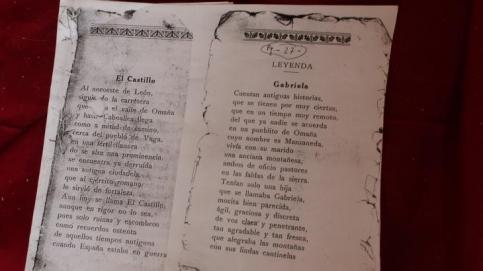 El Castillo
Al noroeste de León,
sigue do la carretera
que a el valle de Omaña
y hacia Caboalles llega
como a mitad de camino,
cerca del pueblo de Vega,
en una fértil llanura
do se alza una prominencia,
se encuentra ya derruida
una antigua ciudadela,
que al ejército romano
le sirvió de fortaleza.
Aun hoy se llama El Castillo,
aunque en rigor no lo sea,
pues solo ruinas y escombros
como recuerdos ostenta
de aquellos tiempos antiguos
cuando España estaba en guerra
Pg - 27 -
LEYENDA
Gabriela
Cuentan antiguas historias,
que se tienen por muy ciertas,
que en un tiempo muy remoto,
del que ya nadie se acuerda
en un pueblito de Omaña
cuyo nombre es Manzaneda,
vivía con su marido
una anciana montañesa,
ambos de oficio pastores
en las faldas de la sierra.
Tenían solo una hija
que se llamaba Gabriela,
mocita bien parecida,
ágil, graciosa y discreta
de voz clara y penetrante,
tan agradable y tan fresca,
que alegraba las montañas
con sus lindas cantinelas